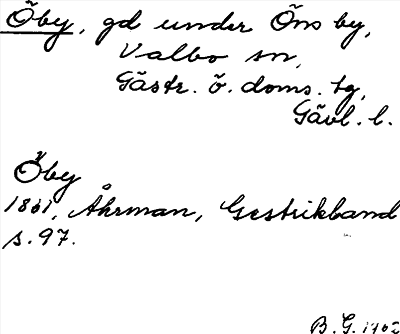 Öby, gd under Öns by,
Valbo sn,
Gästr. ö. doms. tg,
Gävl. l.
Öby
1861, Åhrman, Gestrikland
s. 97.
B. G. 1902